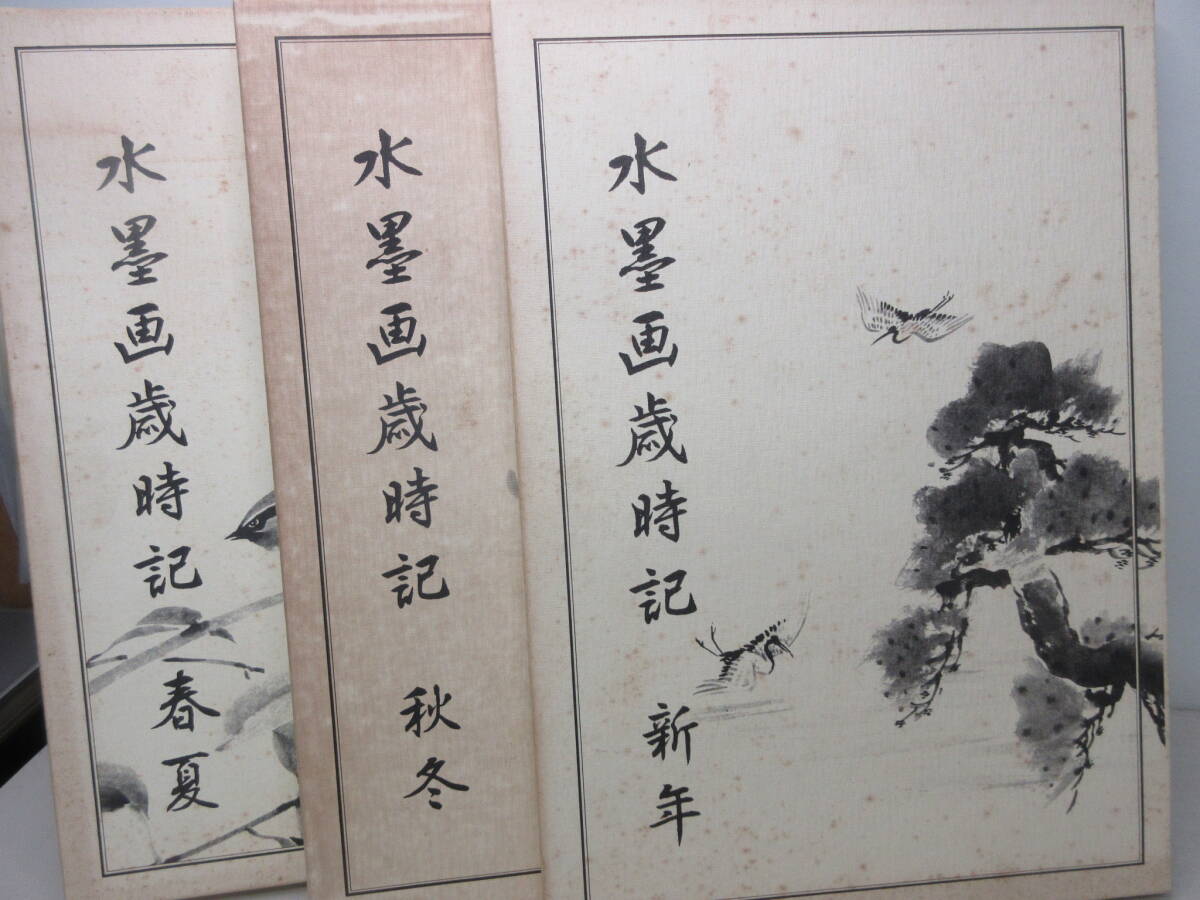 水墨画歳時記 春夏
水墨画歳時記 秋冬
水墨画歳時記 新年